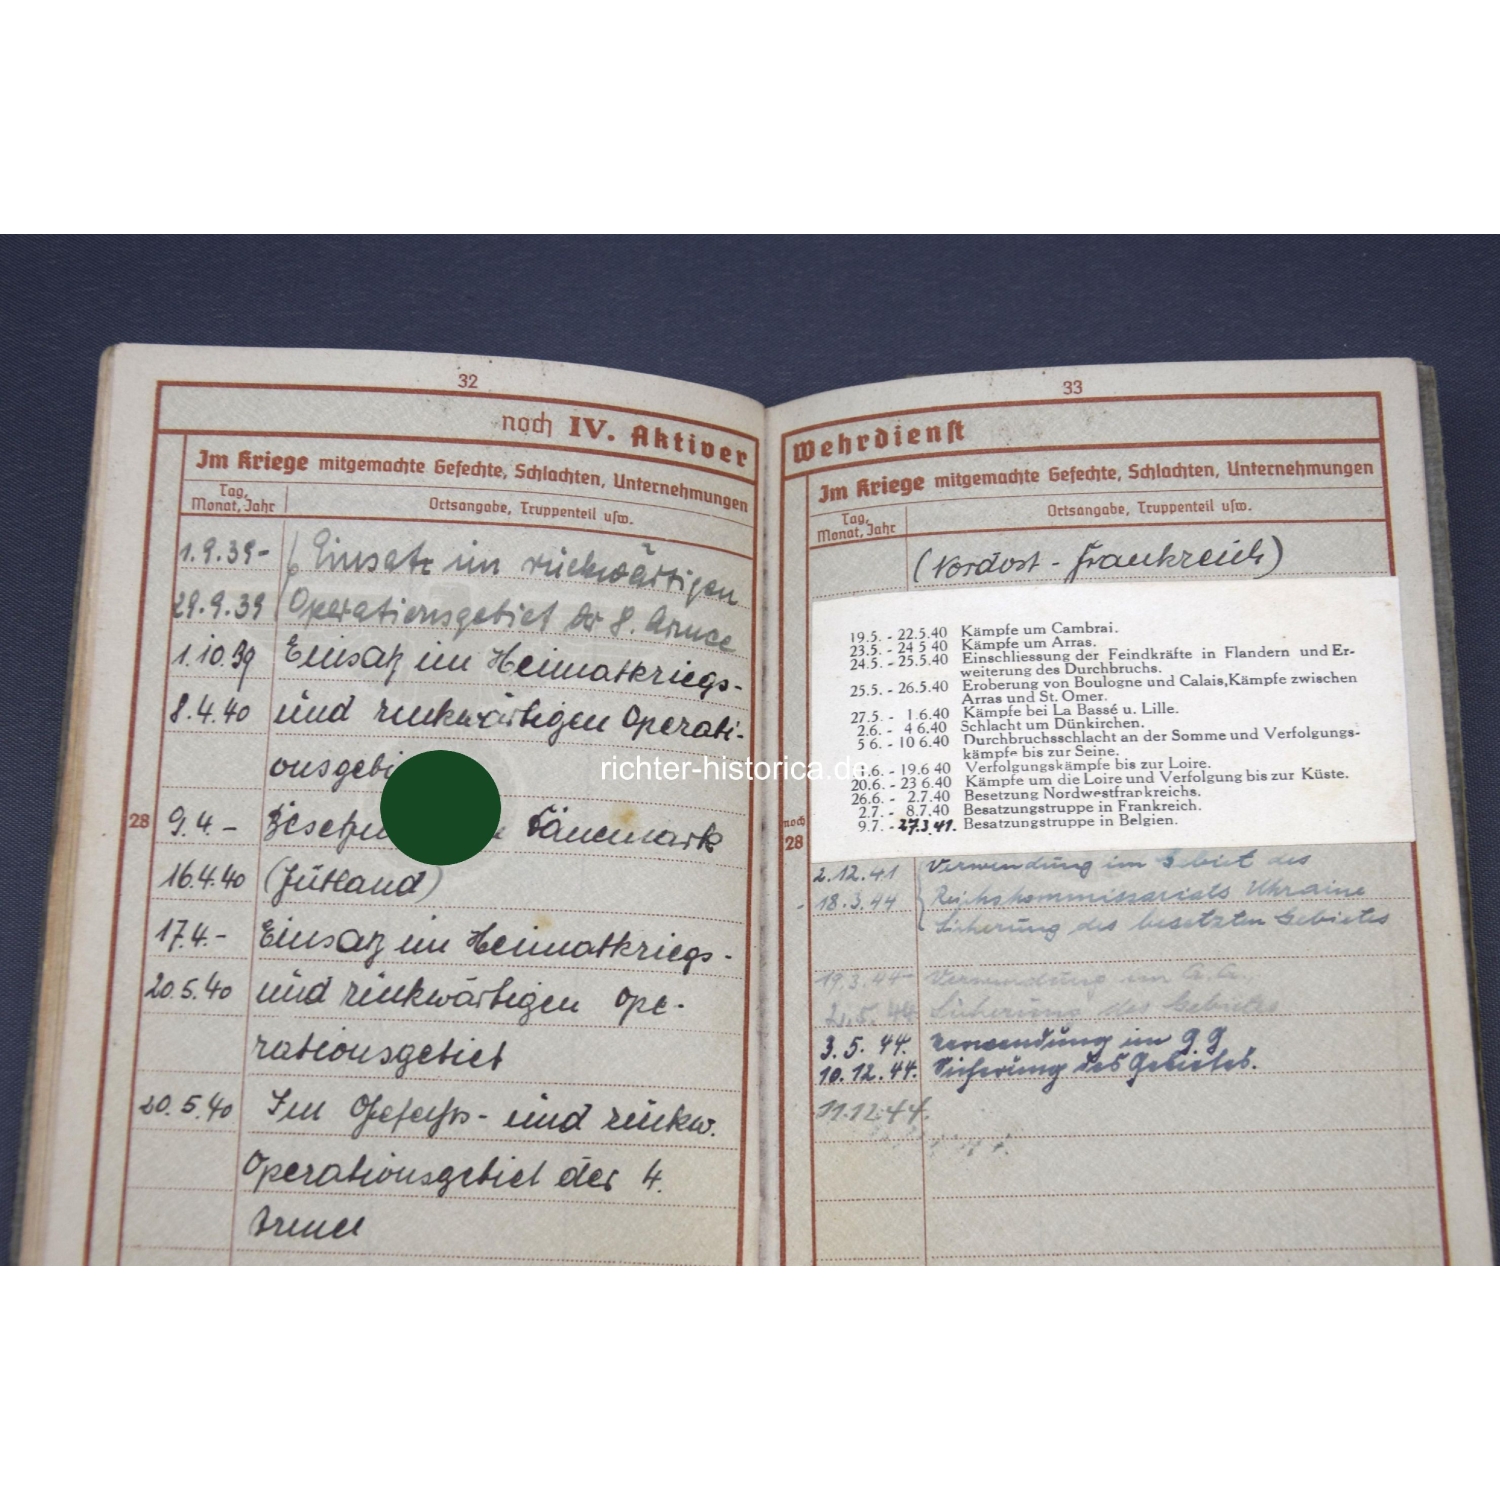 32
noch IV. Aktiver
Im Kriege mitgemachte Gefechte, Schlachten, Unternehmungen
Tag, Monat, Jahr
Ortsangabe, Truppenteil usw.
1.9.39- Einsatz im rückwärtigen
29.9.39 Operationsgebiet der 8. Armee
1.10.39 Einsatz im Heimatkriegs-
8.4.40 und rückwärtigen Operati-
onsgebi
28
9.4.- Dänemark
16.4.40 (Jütland)
17.4.- Einsatz im Heimatkriegs-
20.5.40 und rückwärtigen Ope-
rationsgebiet
20.5.40 Im Gefechts- und rückw.
Operationsgebiet der 4.
Armee
33
Wehrdienst
Im Kriege mitgemachte Gefechte, Schlachten, Unternehmungen
Tag, Monat, Jahr
Ortsangabe, Truppenteil usw.
(Nordost-Frankreich)
19.5. - 22.5.40 Kämpfe um Cambrai.
23.5. - 24 5 40 Kämpfe um Arras.
24.5. - 25.5.40 Einschliessung der Feindkräfte in Flandern und Er-
weiterung des Durchbruchs.
25.5. - 26.5.40 Eroberung von Boulogne und Calais, Kämpfe zwischen
Arras und St. Omer.
27.5. - 1.6.40 Kämpfe bei La Bassé u. Lille.
2.6. - 4 6.40 Schlacht um Dünkirchen.
5 6. - 10 6.40 Durchbruchsschlacht an der Somme und Verfolgungs-
kämpfe bis zur Seine.
.6. - 19.6 40 Verfolgungskämpfe bis zur Loire.
20.6. - 23 6.40 Kämpfe um die Loire und Verfolgung bis zur Küste.
26.6. - 2.7.40 Besetzung Nordwestfrankreichs.
2.7. - 8.7.40 Besatzungstruppe in Frankreich.
9.7. - 27.3.41. Besatzungstruppe in Belgien.
noch
28
2.12.41 Verwendung im Gebiet des
- 18.3.44 Reichskommissariats Ukraine
Sicherung des besetzten Gebietes
19.3.44- Verwendung im
5.44 Sicherung des Gebietes
3.5.44. Verwendung im G.G
10.12.44. Sicherung des Gebietes.
11.12.44.
richter-historica.de